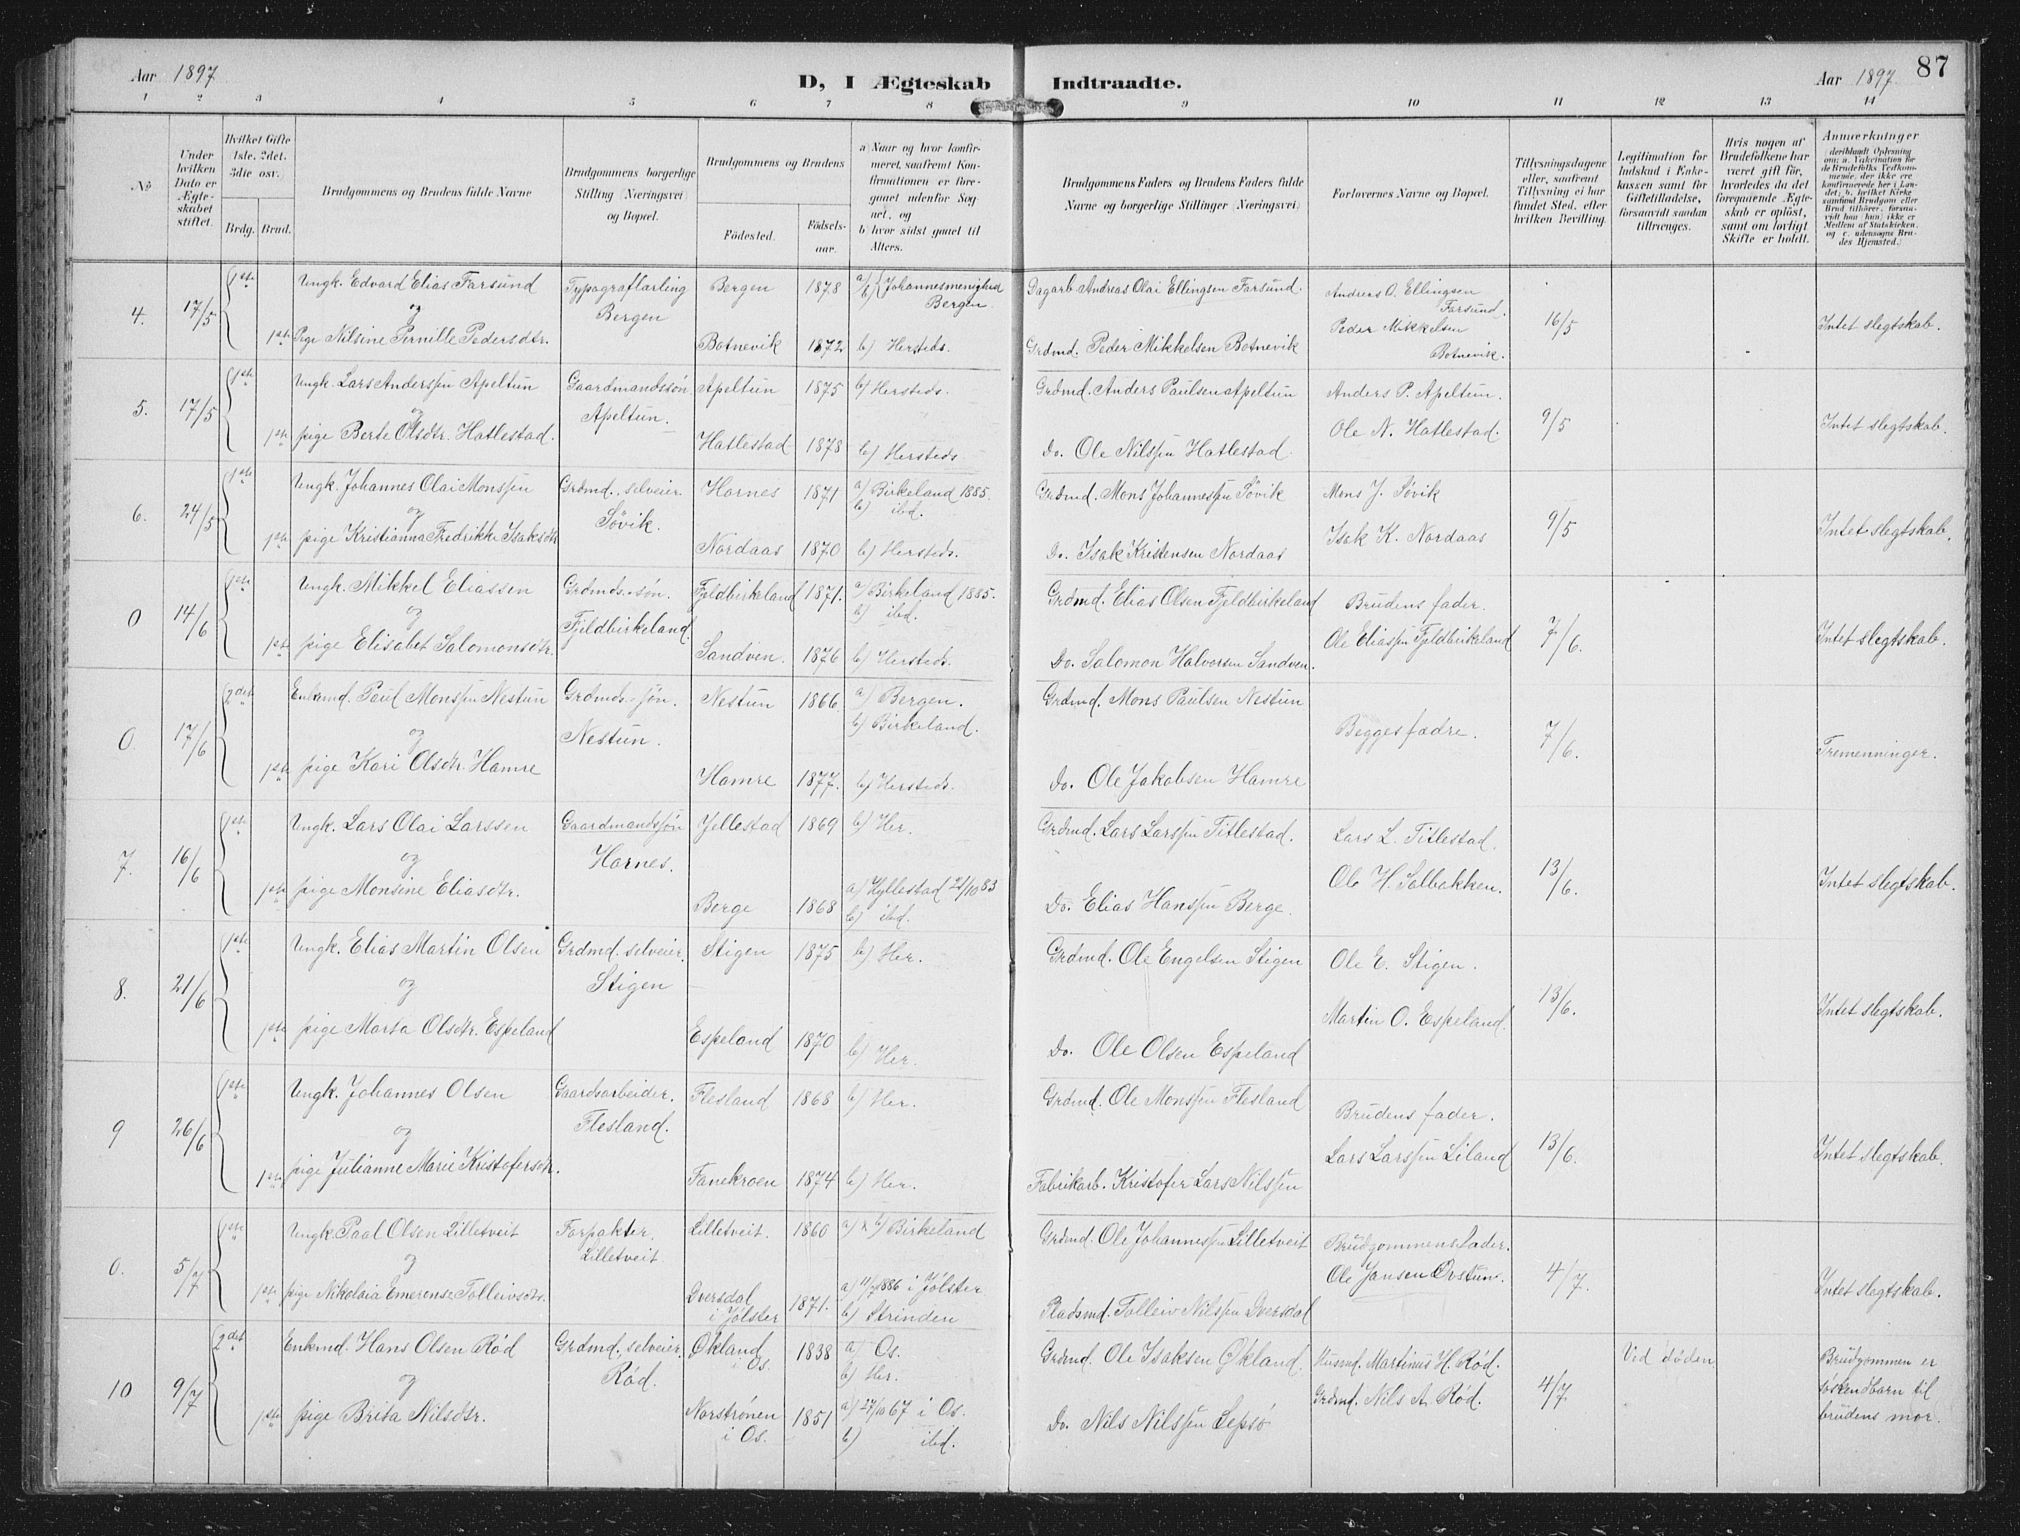 Aar 1897
D, I Ægteskab Indtraadte.
Aar 1897. 87
1 2 3 4 5 6 7 8 9 10 11 12 13 14
No
Under hvilken Dato er Ægteskabet stiftet.
Hvilket Gifte 1ste, 2det, 3die osv.)
Brdg. Brud.
Brudgommens og Brudens fulde Navne
Brudgommens borgerlige Stilling (Næringsvei) og Bopæl.
Brudgommens og Brudens
Fødested. Fødselsaar.
a) Naar og hvor konfirmeret, saafremt Konfirmationen er foregaaet udenfor Sognet, og
b) hvor sidst gaaet til Alters.
Brudgommens Faders og Brudens Faders fulde Navne og borgerlige Stillinger (Næringsvei)
Forlovernes Navne og Bopæl.
Tillysningsdagene eller, saafremt Tillysning ei har fundet Sted, efter hvilken Bevilling.
Legitimation for Indskud i Enkekassen samt for Giftetilladelse, forsaavidt saadan tiltrænges.
Hvis nogen af Brudefolkene har været gift før, hvorledes da det foregaaende Ægteskab er opløst, samt om lovligt Skifte er holdt.
Anmerkninger
deriblandt Oplysning om: a. Vakcination for de Brudefolks Vedkommende, der ikke ere konfirmerede her i Landet; b. hvilket Kirkesamfund Brudgom eller Brud tilhører, forsaavidt han (hun) ikke er Medlem af Statskirken, og c. udensogns Brudes Hjemsted.)
4. 17/5 1ste Ungk. Edvard Elias Farsund Typograflærling Bergen Bergen 1878 a) b) Johannesmenighed Bergen Dagarb. Andreas Olai Ellingsen Farsund. Andreas O. Ellingsen Farsund. 16/5 Intet slegtskab.
og
1ste Pige Nilsine Pernille Pedersdtr. Botnevik 1872 b) Hersteds. Grdmd. Peder Mikkelsen Botnevik Peder Mikkelsen Botnevik.
5. 17/5 1ste Ungk. Lars Anderssen Apeltun Gaardmandssøn Apeltun. Apeltun 1875 b) Hersteds. Grdmd. Anders Paulsen Apeltun Anders P. Apeltun. 9/5 Intet slegtskab.
og
1ste pige Berte Olsdtr. Hatlestad. Hatlestad 1878 b) Hersteds. Do. Ole Nilssen Hatlestad. Ole N. Hatlestad.
6. 24/5 1ste Ungk. Johannes Olai Monssen Grdmd., selveier. Søvik. Hornes 1871 a) Birkeland 1885. b) ibd. Grdmd. Mons Johannessen Søvik Mons J. Søvik 9/5 Intet slegtskab.
og
1ste pige Kristianna Fredrikke Isaksdtr Nordaas 1870 b) Hersteds. Do. Isak Kristensen Nordaas Isak K. Nordaas
0 14/6 1ste Ungk. Mikkel Eliassen Grdmds.-søn. Fjeldbirkeland. Fjeldbirkeland 1871. a) Birkeland 1885. b) ibd. Grdmd. Elias Olsen Fjeldbirkeland Brudens fader. 7/6. Intet slegtskab.
og
1ste pige Elisabet Salomonsdtr. Sandven. 1876 b) Hersteds. Do. Salomon Halvorsen Sandven. Ole Eliassen Fjeldbirkeland
0. 17/6 2det Enkemd. Paul Monssen Nestun Grdmds.-søn. Nestun. Nestun 1866 a) Bergen. b) Birkeland. Grdmd. Mons Paulsen Nestun Begges fædre. 7/6. Tremenninger.
og
1ste pige Kari Olsdtr. Hamre Hamre 1877. b) Hersteds. Do. Ole Jakobsen Hamre
7. 16/6 1ste Ungk. Lars Olai Larssen Gaardmandssøn Hornes. Jellestad 1869 b) Her. Grdmd. Lars Larssen Titlestad. Lars L. Titlestad. 13/6. Intet slegtskab.
og
1ste pige Monsine Eliasdtr. Berge 1868 a) Hyllestad 21/10 83 b) ibd. Do. Elias Hanssen Berge. Ole H. Solbakken.
8. 21/6 1ste Ungk. Elias Martin Olsen Grdmd. selveier. Stigen Stigen 1875 b) Her. Grdmd. Ole Engelsen Stigen Ole E. Stigen. 13/6. Intet slegtskab.
og
1ste pige Marta Olsdtr. Espeland Espeland 1870 b) Her. Do. Ole Olsen Espeland Martin O. Espeland.
9 26/6 1ste Ungk. Johannes Olsen Gaardsarbeider. Flesland. Flesland 1868 b) Her. Grdmd. Ole Monssen Flesland Brudens fader. 13/6. Intet slegtskab.
og
1ste pige Julianne Marie Kristofersdtr. Fanekroen 1874 b) Her. Fabrikarb. Kristofer Lars Nilssen Lars Larssen Liland
0. 5/7 1ste Ungk. Paal Olsen Lilletveit Forpakter. Lilletveit. Lilletveit. 1860 a) & b) Birkeland Grdmd. Ole Johannessen Lilletveit Brudgommens fader. 4/7. Intet slegtskab.
og
1ste pige Nikolaia Emerense Tolleivsdtr. Dversdal i Jølster 1871. a) 11/7 1886 i Jølster b) Strinden Pladsmd. Tolleiv Nilssen Dversdal Ole Jansen Øvstun.
10 9/7 2det Enkemd. Hans Olsen Rød Grdmd., selveier. Rød. Økland i Os. 1838 a) Os. b) Her. Grdmd. Ole Isaksen Økland. Husmd. Martinus H. Rød. 4/7. Ved døden Brudgommen er søskendbarn til brudens mor.
og
1ste pige Brita Nilsdtr. Norstrønen i Os. 1851 a) 27/10 67 i Os. b) ibd. Do. Nils Nilssen Lepsø Grdmd. Nils A. Rød.